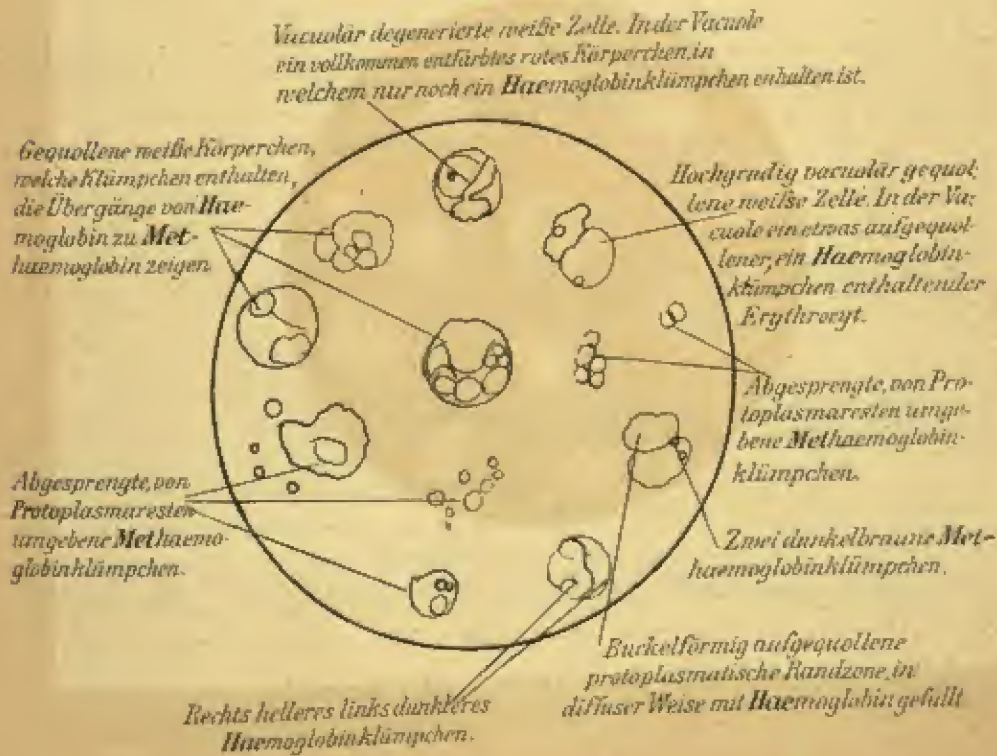 Vacuolär degenerierte weiße Zelle. In der Vacuole
ein vollkommen entfärbtes rotes Körperchen, in
welchem nur noch ein Haemoglobinklümpchen enhalten ist.
Gequollene weiße Körperchen,
welche Klümpchen enthalten,
die Übergänge von Hae-
moglobin zu Met-
haemoglobin zeigen.
Hochgradig vacuolär gequol-
lene weiße Zelle. In der Va-
cuole ein etwas aufgequol-
lener, ein Haemoglobin-
klümpchen enthaltender
Erythrocyt.
Abgesprengte, von Pro-
toplasmaresten umge-
bene Methaemoglobin-
klümpchen.
Abgesprengte, von
Protoplasmaresten
umgebene Methaemo-
globinklümpchen.
Zwei dunkelbraune Met-
haemoglobinklümpchen.
Buckelförmig aufgequollene
protoplasmatische Randzone, in
diffuser Weise mit Haemoglobin gefüllt
Rechts helleres links dunkleres
Haemoglobinklümpchen.